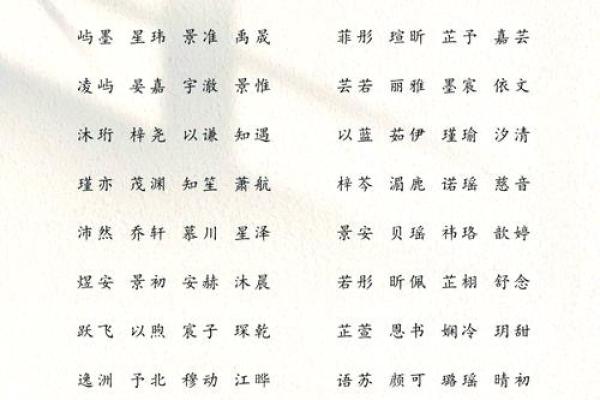 屿墨 星玮 景准 禹晟 菲彤 瑄昕 芷予 嘉芸
凌屿 晏嘉 宇澈 景惟 芸若 丽雅 墨宸 依文
沐珩 梓尧 以谦 知遇 以蓝 茹伊 瑾瑜 汐清
瑾亦 茂渊 知笙 萧航 梓芩 湄鹿 诺瑶 慈音
沛然 乔轩 慕川 星泽 景安 贝瑶 祎珞 歆婷
煜安 景初 安赫 沐晨 若彤 昕佩 芷栩 舒念
跃飞 以煦 宸子 琛乾 芷萱 恩书 娴冷 玥甜
逸洲 予北 穆动 江晔 语苏 颜可 璐瑶 晴初